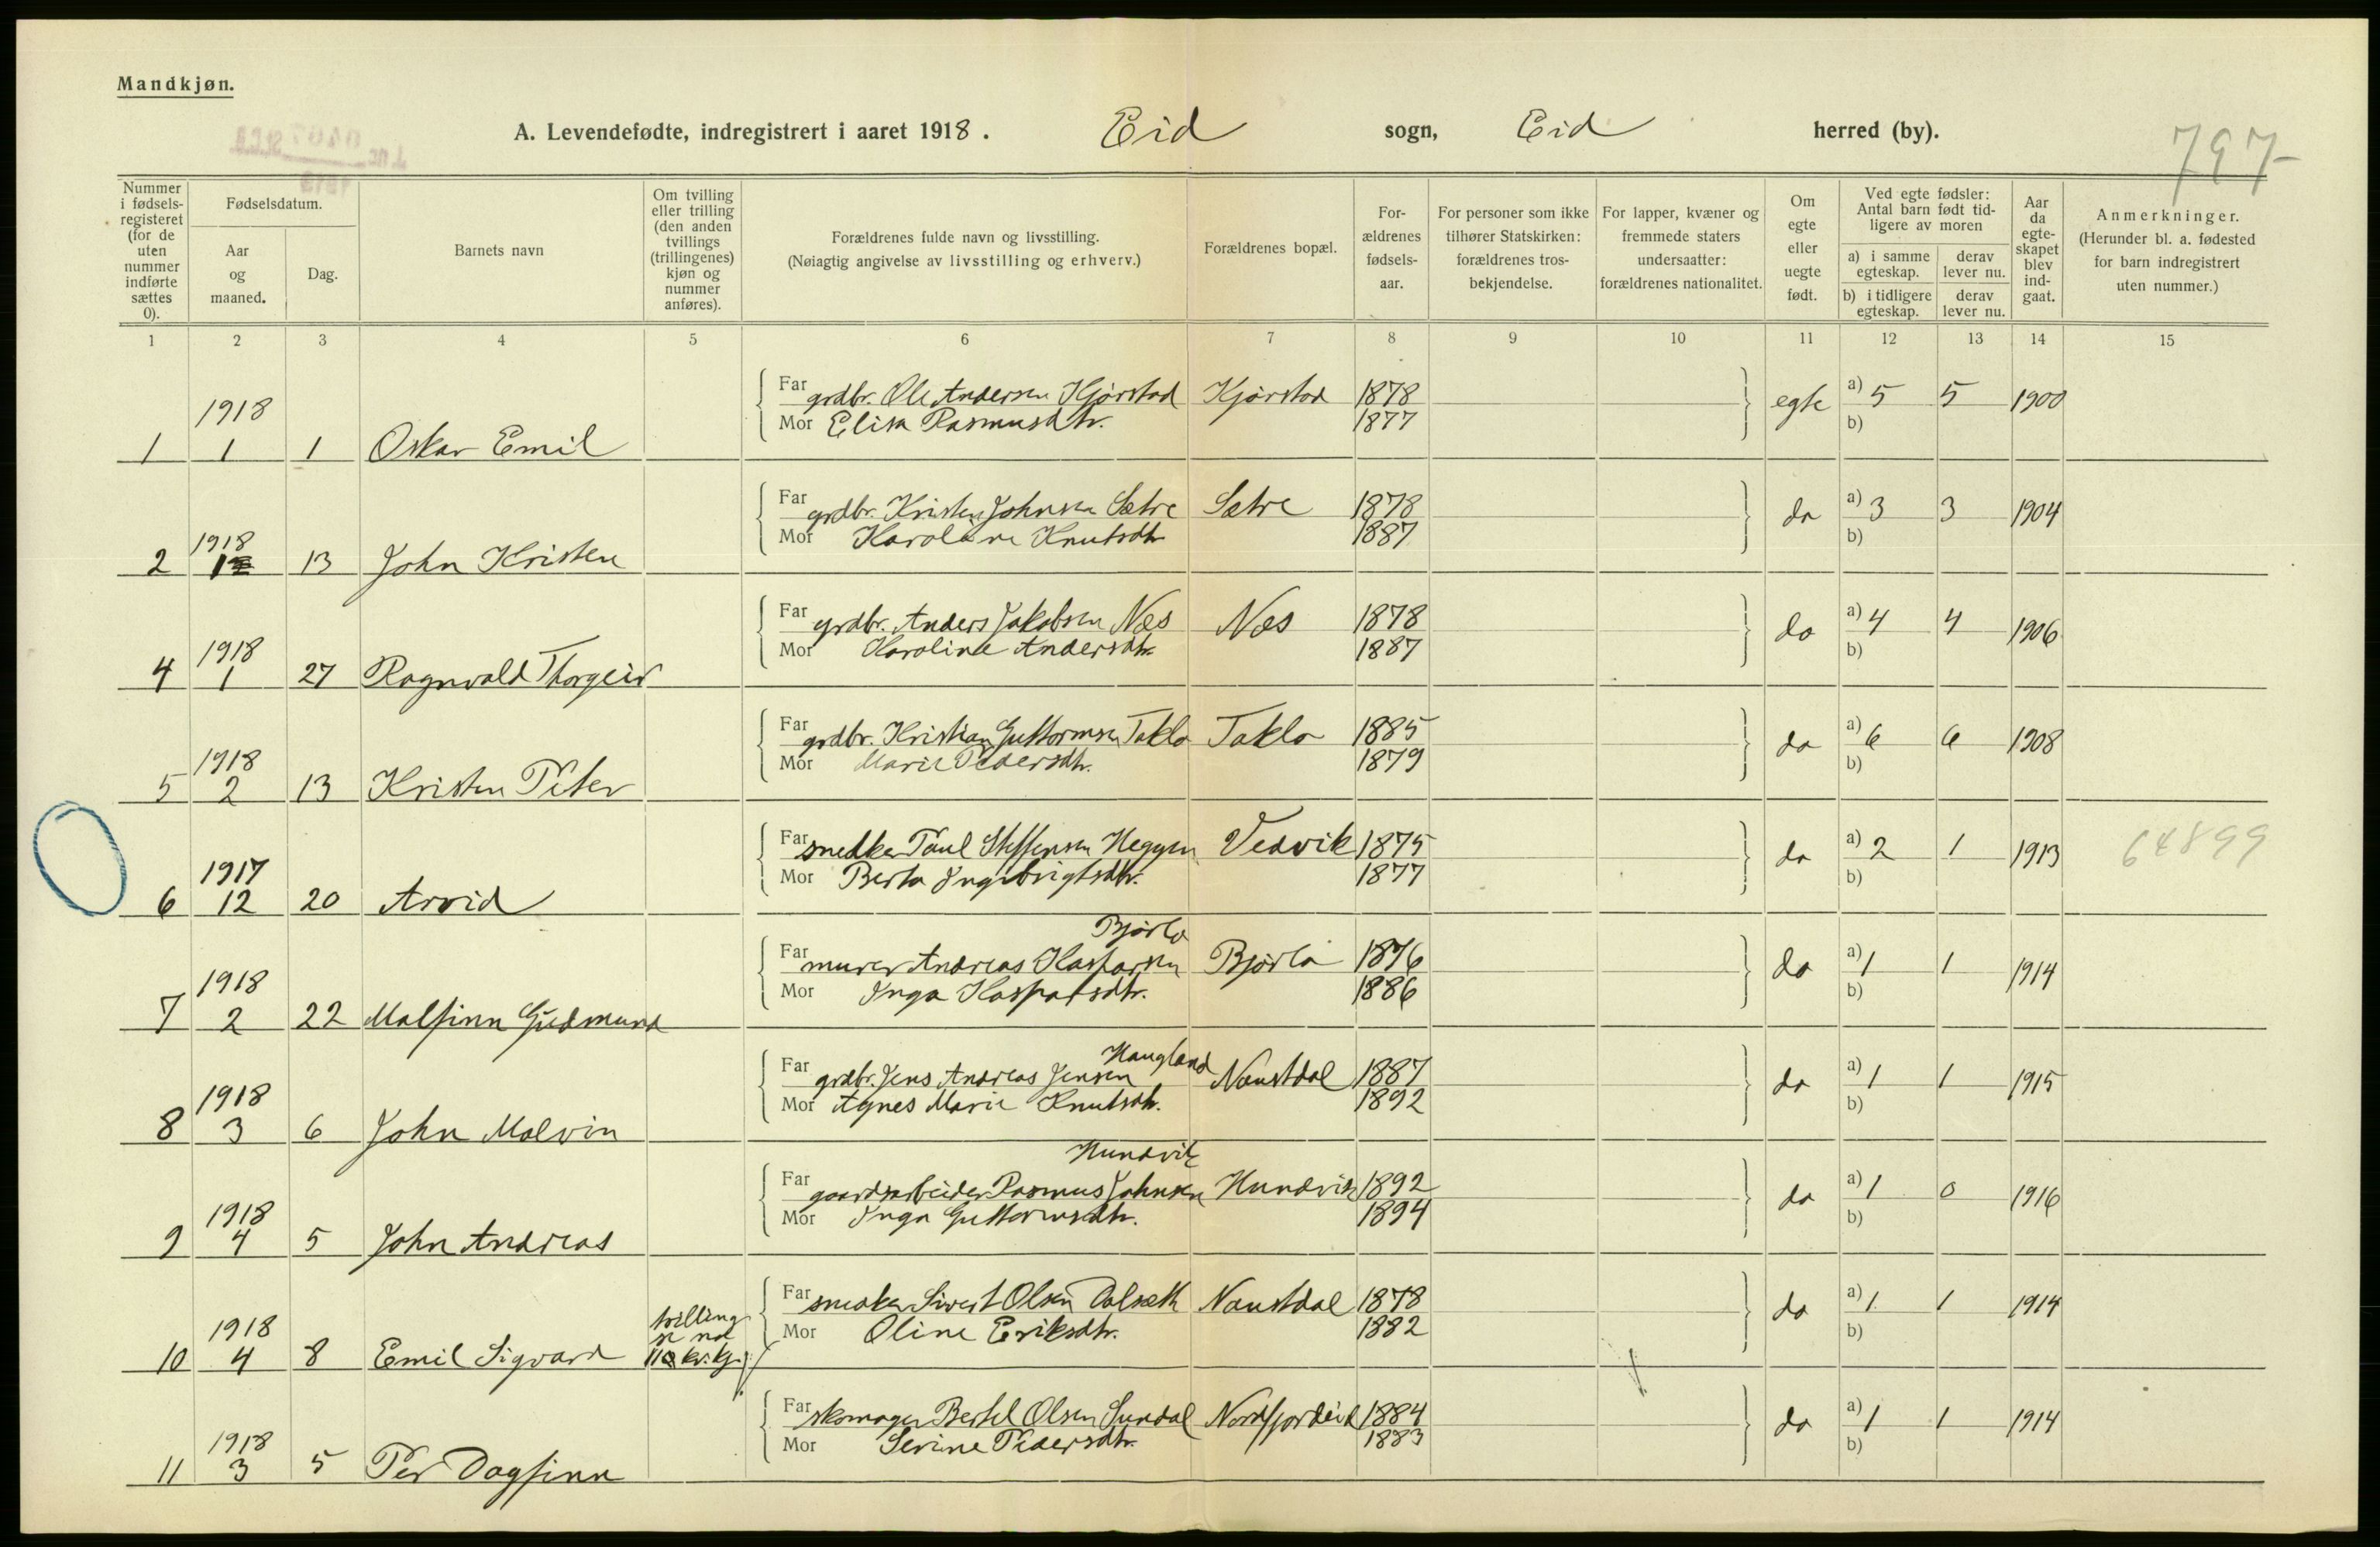 Mandkjøn.
A. Levendefødte, indregistrert i aaret 1918. Eid sogn, Eid herred (by).
797
Nummer i fødsels-registeret (for de uten nummer indførte sættes 0).
Fødselsdatum.
Aar og maaned.
Dag.
Barnets navn
Om tvilling eller trilling (den anden tvillings (trillingenes) kjøn og nummer anføres).
Forældrenes fulde navn og livsstilling.
(Nøiagtig angivelse av livsstilling og erhverv.)
Forældrenes bopæl.
For-ældrenes fødsels-aar.
For personer som ikke tilhører Statskirken: forældrenes tros-bekjendelse.
For lapper, kvæner og fremmede staters undersaatter: forældrenes nationalitet.
Om egte eller uegte født.
Ved egte fødsler: Antal barn født tid-ligere av moren
a) i samme egteskap.
derav lever nu.
b) i tidligere egteskap.
derav lever nu.
Aar da egte-skapet blev ind-gaat.
Anmerkninger.
(Herunder bl. a. fødested for barn indregistrert uten nummer.)
1 2 3 4 5 6 7 8 9 10 11 12 13 14 15
1918
Far grdbr. Ole Andersen Kjørstad Kjørstad 1878 egte a) 5 5 1900
Mor Elisa Rasmusdtr. 1877 b)
1 1 1 Oskar Emil
Far grdbr. Kristen Johnsen Sætre Sætre 1878 do a) 3 3 1904
Mor Karoline Knutsdtr 1887 b)
1918
2 1 13 John Kristen
Far grdbr. Anders Jakobsen Næs Næs 1878 do a) 4 4 1906
Mor Karoline Andersdtr. 1887 b)
1918
4 1 27 Ragnvald Thorgeir
Far grdbr. Kristian Guttormsen Taklo Taklo 1885 do a) 6 6 1908
Mor Marie Pedersdtr. 1879 b)
1918
5 2 13 Kristen Peter
Far snedker Paul Steffensen Heggen Vedvik 1875 do a) 2 1 1913 64899
Mor Berta Ingebrigtsdtr. 1877 b)
1917
6 12 20 Arvid
Bjørlo
Far murer Andreas Kasparsen Bjørlo 1876 do a) 1 1 1914
Mor Inga Kasparsdtr. 1886 b)
1918
7 2 22 Malfinn Gudmund
Haugland
Far grdbr. Jens Andreas Jensen Naustdal 1887 do a) 1 1 1915
Mor Agnes Marie Knutsdtr. 1892 b)
1918
8 3 6 John Malvin
Hundvik
Far gaardsarbeider Rasmus Johnsen Hundvik 1892 do a) 1 0 1916
Mor Inga Guttormsdtr. 1894 b)
1918
9 4 5 John Andreas
Far snedker Sivert Olsen Dalsæth Naustdal 1878 do a) 1 1 1914
Mor Oline Eriksdtr. 1882 b)
tvilling
1918 se no
10 4 8 Emil Sigvard 11 kv.kj.
Far skomager Bertel Olsen Sundal Nordfjordeid 1884 do a) 1 1 1914
Mor Serine Pedersdtr. 1883 b)
1918
11 3 5 Per Dagfinn